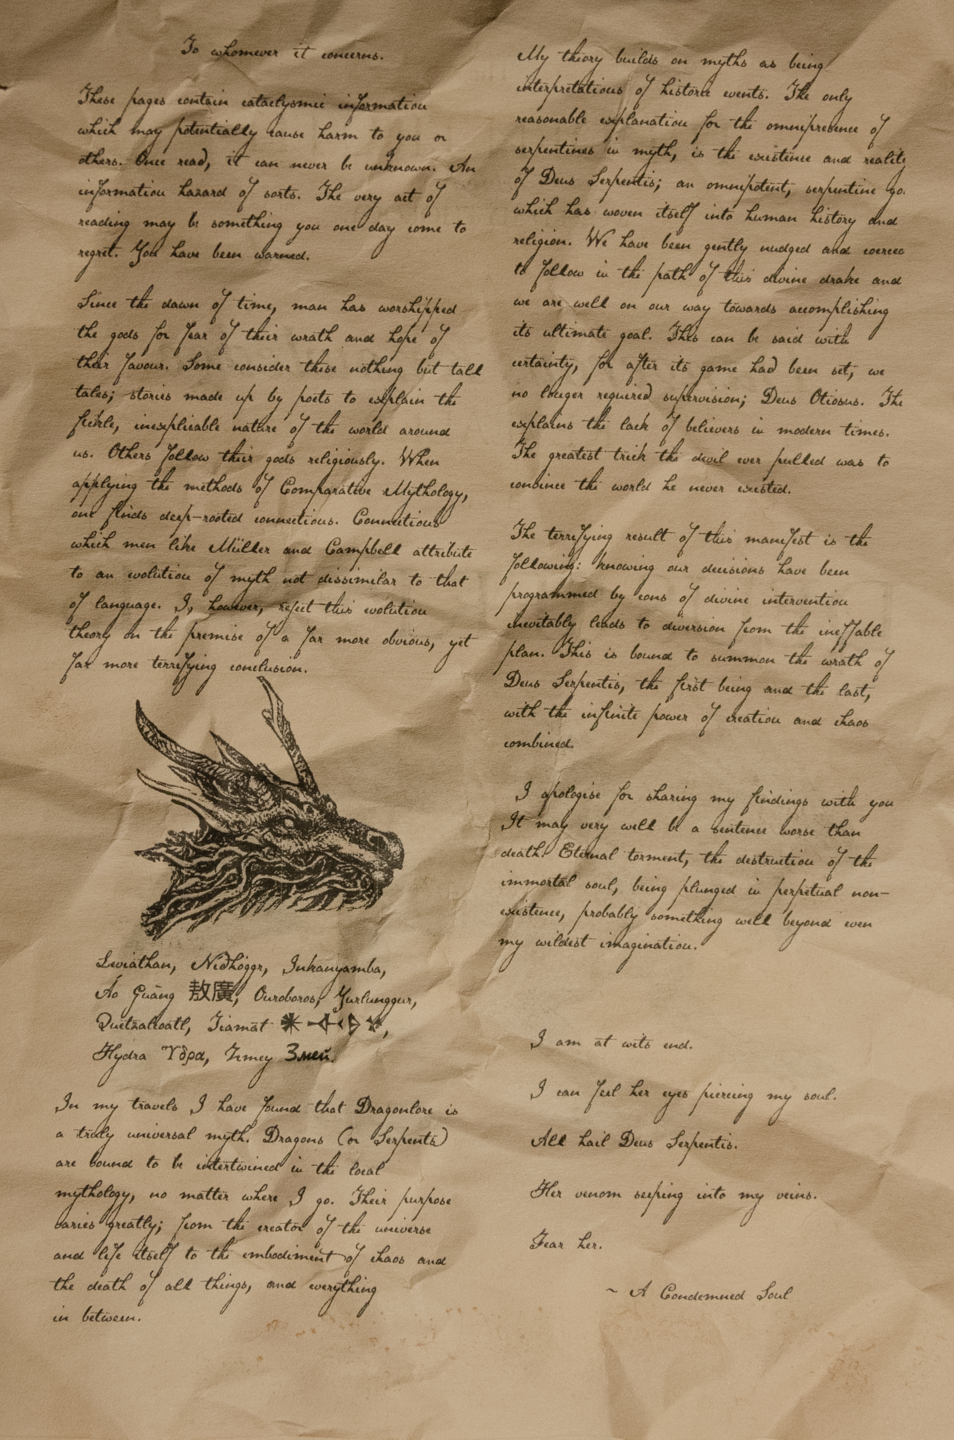 To whomever it concerns.
These pages contain cataclysmic information
which may potentially cause harm to you or
others. Once read, it can never be unknown. An
information hazard of sorts. The very act of
reading may be something you one day come to
regret. You have been warned.
Since the dawn of time, man has worshipped
the gods for fear of their wrath and hope of
their favour. Some consider these nothing but tall
tales; stories made up by poets to explain the
fickle, inexplicable nature of the world around
us. Others follow their gods religiously. When
applying the methods of Comparative Mythology,
one finds deep-rooted connections. Connections
which men like Müller and Campbell attribute
to an evolution of myth not dissimilar to that
of language. I, however, reject this evolution
theory on the premise of a far more obvious, yet
far more terrifying conclusion.
Leviathan, Nidhöggr, Inkanyamba,
Áo Guāng 敖廣, Ouroboros, Yurlunggur,
Quetzalcoatl, Tiamat
Hydra Ὕδρα, Zmey Змей.
In my travels I have found that Dragonlore is
a truly universal myth. Dragons (or Serpents)
are bound to be intertwined in the local
mythology, no matter where I go. Their purpose
varies greatly; from the creator of the universe
and life itself to the embodiment of chaos and
the death of all things, and everything
in between.
My theory builds on myths as being
interpretations of historic events. The only
reasonable explanation for the omnipresence of
serpentines in myth, is the existence and reality
of Deus Serpentis; an omnipotent, serpentine go
which has woven itself into human history and
religion. We have been gently nudged and coerced
to follow in the path of this divine drake and
we are well on our way towards accomplishing
its ultimate goal. This can be said with
certainty, for after its game had been set, we
no longer required supervision; Deus Otiosus. The
explains the lack of believers in modern times.
The greatest trick the devil ever pulled was to
convince the world he never existed.
The terrifying result of this manifest is the
following: knowing our decisions have been
programmed by eons of divine intervention
inevitably leads to diversion from the ineffable
plan. This is bound to summon the wrath of
Deus Serpentis, the first being and the last,
with the infinite power of creation and chaos
combined.
I apologise for sharing my findings with you
It may very well be a sentence worse than
death. Eternal torment, the destruction of the
immortal soul, being plunged in perpetual non-
existence, probably something well beyond even
my wildest imagination.
I am at wits end.
I can feel her eyes piercing my soul.
All hail Deus Serpentis.
Her venom seeping into my veins.
Fear her.
~ A Condemned Soul